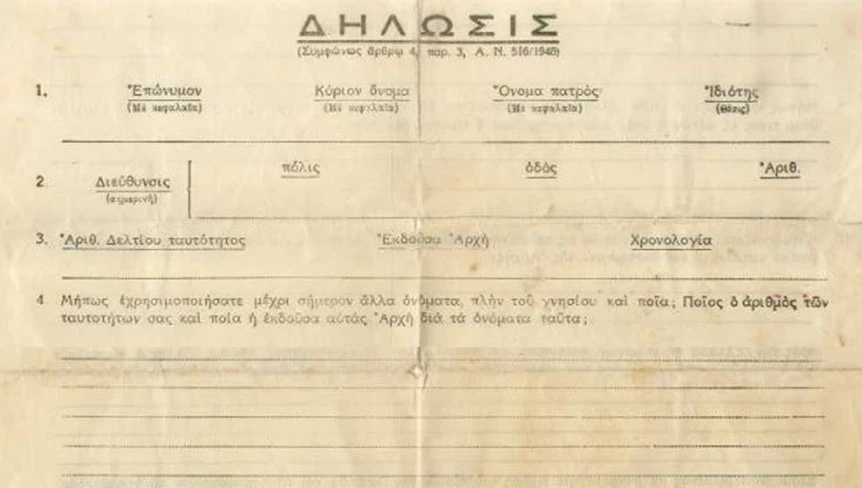 ΔΗΛΩΣΙΣ
(Συμφώνως ἄρθρῳ 4, παρ. 3, Α. Ν. 516/1948)
1. Ἐπώνυμον Κύριον ὄνομα Ὄνομα πατρός Ἰδιότης
(Μὲ κεφαλαῖα) (Μὲ κεφαλαῖα) (Μὲ κεφαλαῖα) (θέσις)
πόλις ὁδὸς Ἀριθ.
2 Διεύθυνσις
(σημερινὴ)
3. Ἀριθ. Δελτίου ταυτότητος Ἐκδοῦσα Ἀρχὴ Χρονολογία
4 Μήπως ἐχρησιμοποιήσατε μέχρι σήμερον ἄλλα ὀνόματα, πλὴν τοῦ γνησίου καὶ ποῖα; Ποῖος ὁ ἀριθμὸς τῶν
ταυτοτήτων σας καὶ ποία ἡ ἐκδοῦσα αὐτάς Ἀρχὴ διὰ τὰ ὀνόματα ταῦτα;